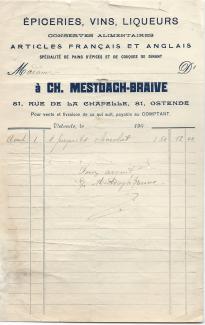 ÉPICERIES, VINS, LIQUEURS
CONSERVES ALIMENTAIRES
ARTICLES FRANÇAIS ET ANGLAIS
SPÉCIALITÉ DE PAINS D'ÉPICES ET DE COUQUES DE DINANT
M D
à CH. MESTDACH-BRAIVE
81, RUE DE LA CHAPELLE, 81, OSTENDE
Pour vente et livraison de ce qui suit, payable au COMPTANT.
Ostende, le 190
Août 1 chocolat
Pour acquit